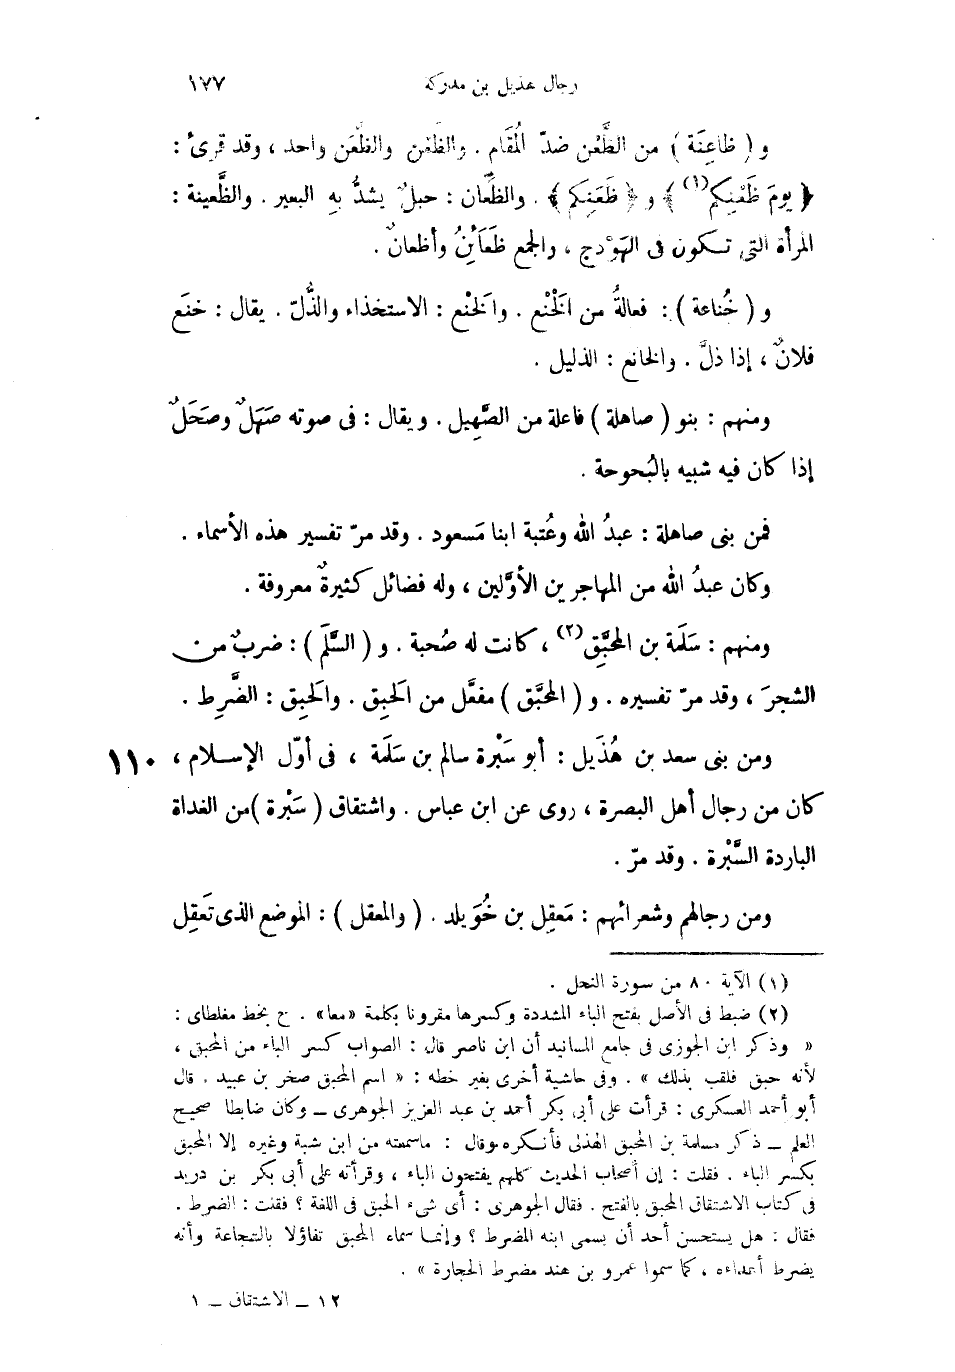 رجال هذيل بن مدركة ١٧٧
و ( ظاعِنَة ) من الظَّعْن ضدّ المُقَام . والظَّعْن والظَّعَن واحد ، وقد قرئ :
﴿ يومَ ظَعْنِكم (١) ﴾ و ﴿ ظَعَنِكم ﴾ . والظِّعَان : حبلٌ يشدُّ به البعير . والظَّعينة :
المرأة التي تـكون فى الهَوْدج ، والجمع ظَعَائنُ وأظعانٌ .
و ( خُناعة ) : فعالةُ من الخَنْع . والخَنْع : الاستخذاء والذُّلّ . يقال : خنَع
فلانٌ ، إذا ذلَّ . والخانع : الذليل .
ومنهم : بنو ( صاهلة ) فاعلة من الصَّهِيل . ويقال : فى صوته صَهَلٌ وصَحَلٌ
إذا كان فيه شبيه بالبُحوحة .
فمن بنى صاهلة : عبدُ الله وعُتبة ابنا مَسعود . وقد مرّ تفسير هذه الأسماء .
وكان عبدُ الله من المهاجرين الأوَّلين ، وله فضائل كثيرةٌ معروفة .
ومنهم : سَلَمة بن المحبَّق (٢) ، كانت له صُحبة . و ( السَّلَم ) : ضربٌ من
الشجرَ ، وقد مرّ تفسيره . و ( المحَبَّق ) مفعَّل من الحَبِق . والحَبِق : الضَّرِط .
ومن بنى سعد بن هُذَيل : أبو سَبْرة سالم بن سَلَمة ، فى أوّل الإسـلام ، ١١٠
كان من رجال أهل البصرة ، روى عن ابن عباس . واشتقاق ( سَبْرة ) من الغداة
الباردة السَّبْرة . وقد مرّ .
ومن رجالهم وشعرائهم : مَعقِل بن خُوَيلد . ( والمعقل ) : الموضع الذى تَعقِل
(١) الآية ٨٠ من سورة النحل .
(٢) ضبط فى الأصل بفتح الباء المشددة وكسرها مقرونا بكلمة «معا» . ح بخط مغلطاى :
« وذكر ابن الجوزى فى جامع المسانيد أن ابن ناصر قال : الصواب كسر الباء من المحبق ،
لأنه حبق فلقب بذلك » . وفى حاشية أخرى بغير خطه : « اسم المحبق صخر بن عبيد . قال
أبو أحمد العسكرى : قرأت على أبى بكر أحمد بن عبد العزيز الجوهرى ــ وكان ضابطا صحيح
العلم ــ ذكر مسلمة بن المحبق الهذلى فأنـكره وقال : ماسمعته من ابن شبة وغيره إلا المحبق
بكسر الباء . فقلت : إن أصحاب الحديث كلهم يفتحون الباء ، وقرأته على أبى بكر بن دريد
فى كتاب الاشتقاق المحبق بالفتح . فقال الجوهرى : أى شىء الحبق فى اللغة ؟ فقلت : الضرط .
فقال : هل يستحسن أحد أن يسمى ابنه المضرط ؟ وإنمـا سماه المحبق تفاؤلا بالشجاعة وأنه
يضرط أعداءه ، كما سموا عمرو بن هند مضرط الحجارة » .
١٢ ــ الاشتقاق ــ ١